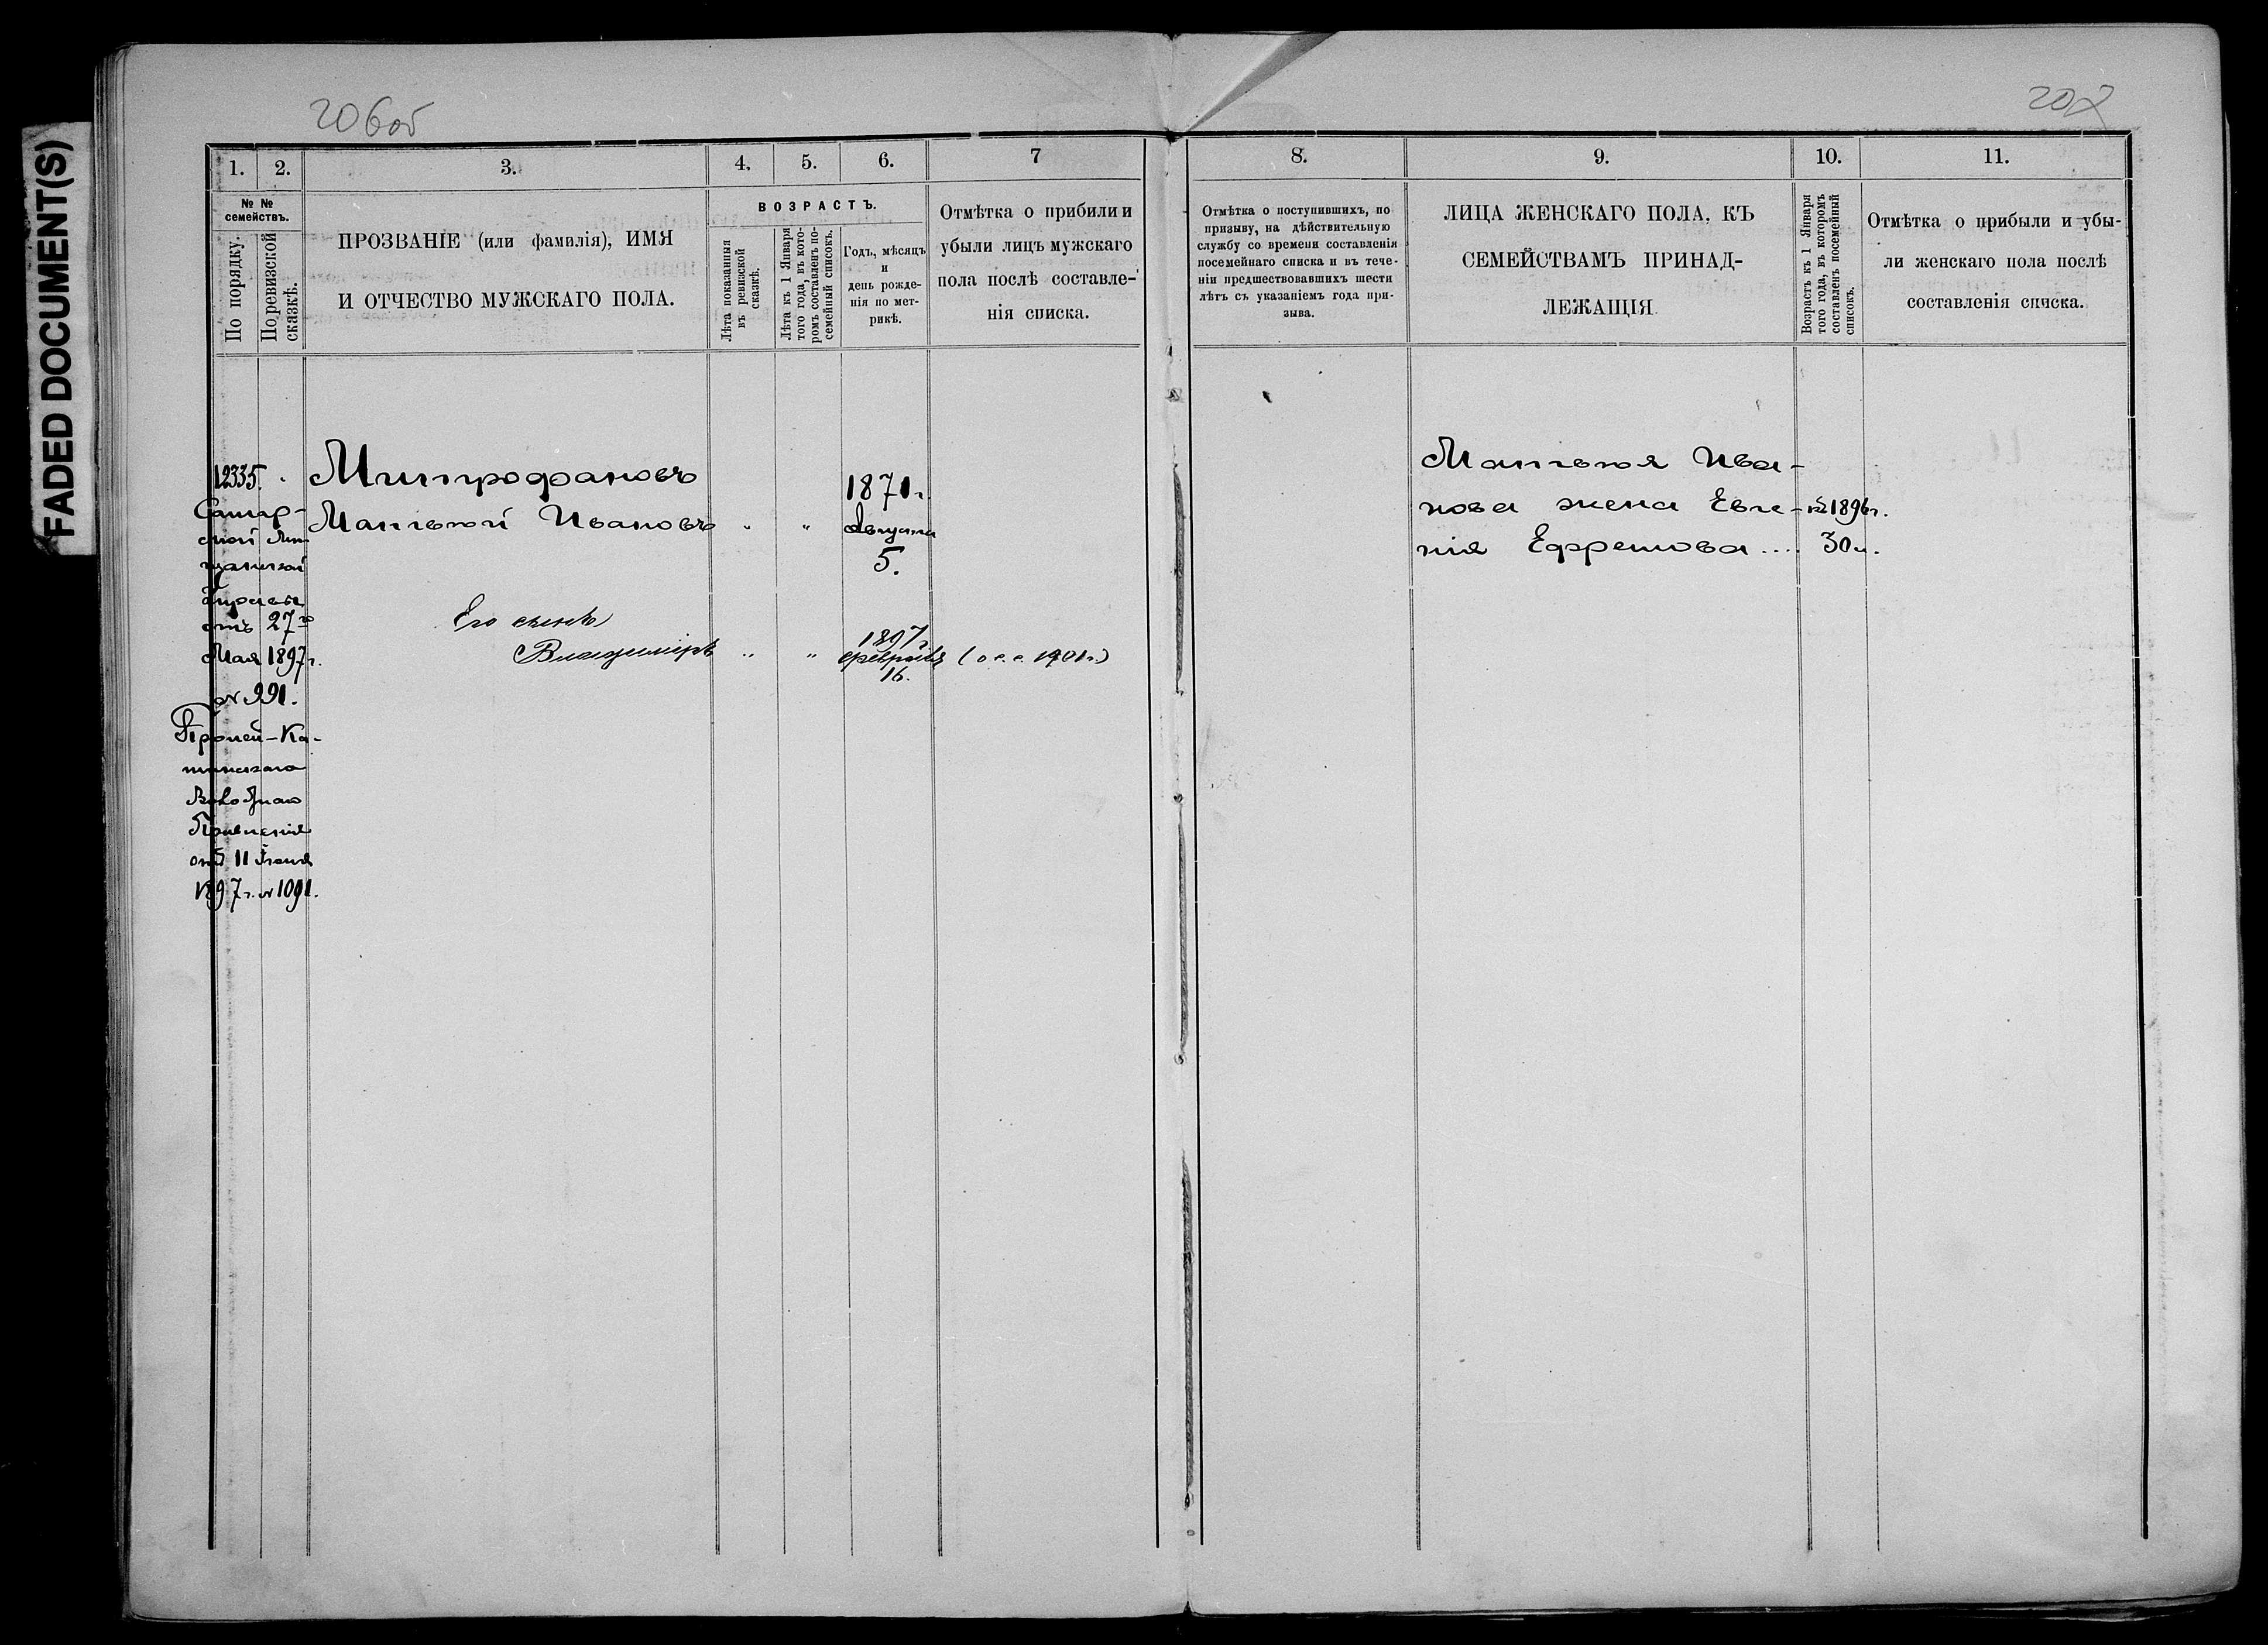 FADED DOCUMENT(S)
206об
207
1.
2.
3.
4.
5.
6.
7
№ №
семействъ.
По порядку.
По ревизской
сказкѣ.
ПРОЗВАНІЕ (или фамилія), ИМЯ
И ОТЧЕСТВО МУЖСКАГО ПОЛА.
ВОЗРАСТЪ.
Лѣта показанія
въ ревизской
сказкѣ.
Лѣта къ 1 Января
того года, въ кото-
ромъ составленъ по-
семейный список.
Годъ, мѣсяцъ
и
день рожде-
нія по мет-
рикѣ.
Отмѣтка о прибыли и
убыли лицъ мужскаго
пола послѣ составле-
нія списка.
12335.
Митрофановъ
Матвей Ивановъ
1871 г.
Августа
5.
Самар-
ской Мѣ-
щанской
Управы
отъ 27го
Мая 1897 г.
№ 991.
Его сынъ
Владиміръ
1897 г.
февраля
16.
(о с. с. 1901 г.)
Волостнаго
Правленія
отъ 11 Іюня
1897 г. № 1091.
8.
9.
10.
11.
Отмѣтка о поступившихъ, по
призыву, на дѣйствительную
службу со времени составленія
посемейнаго списка и въ тече-
ніи предшествовавшихъ шести
лѣтъ съ указаніемъ года при-
зыва.
ЛИЦА ЖЕНСКАГО ПОЛА, КЪ
СЕМЕЙСТВАМЪ ПРИНАД-
ЛЕЖАЩІЯ
Возрастъ къ 1 Января
того года, въ которомъ
составленъ посемейный
списокъ.
Отмѣтка о прибыли и убы-
ли женскаго пола послѣ
составленія списка.
Матвея Ива-
нова жена Евге-
нія Ефремова....
къ 1896 г.
30 л.